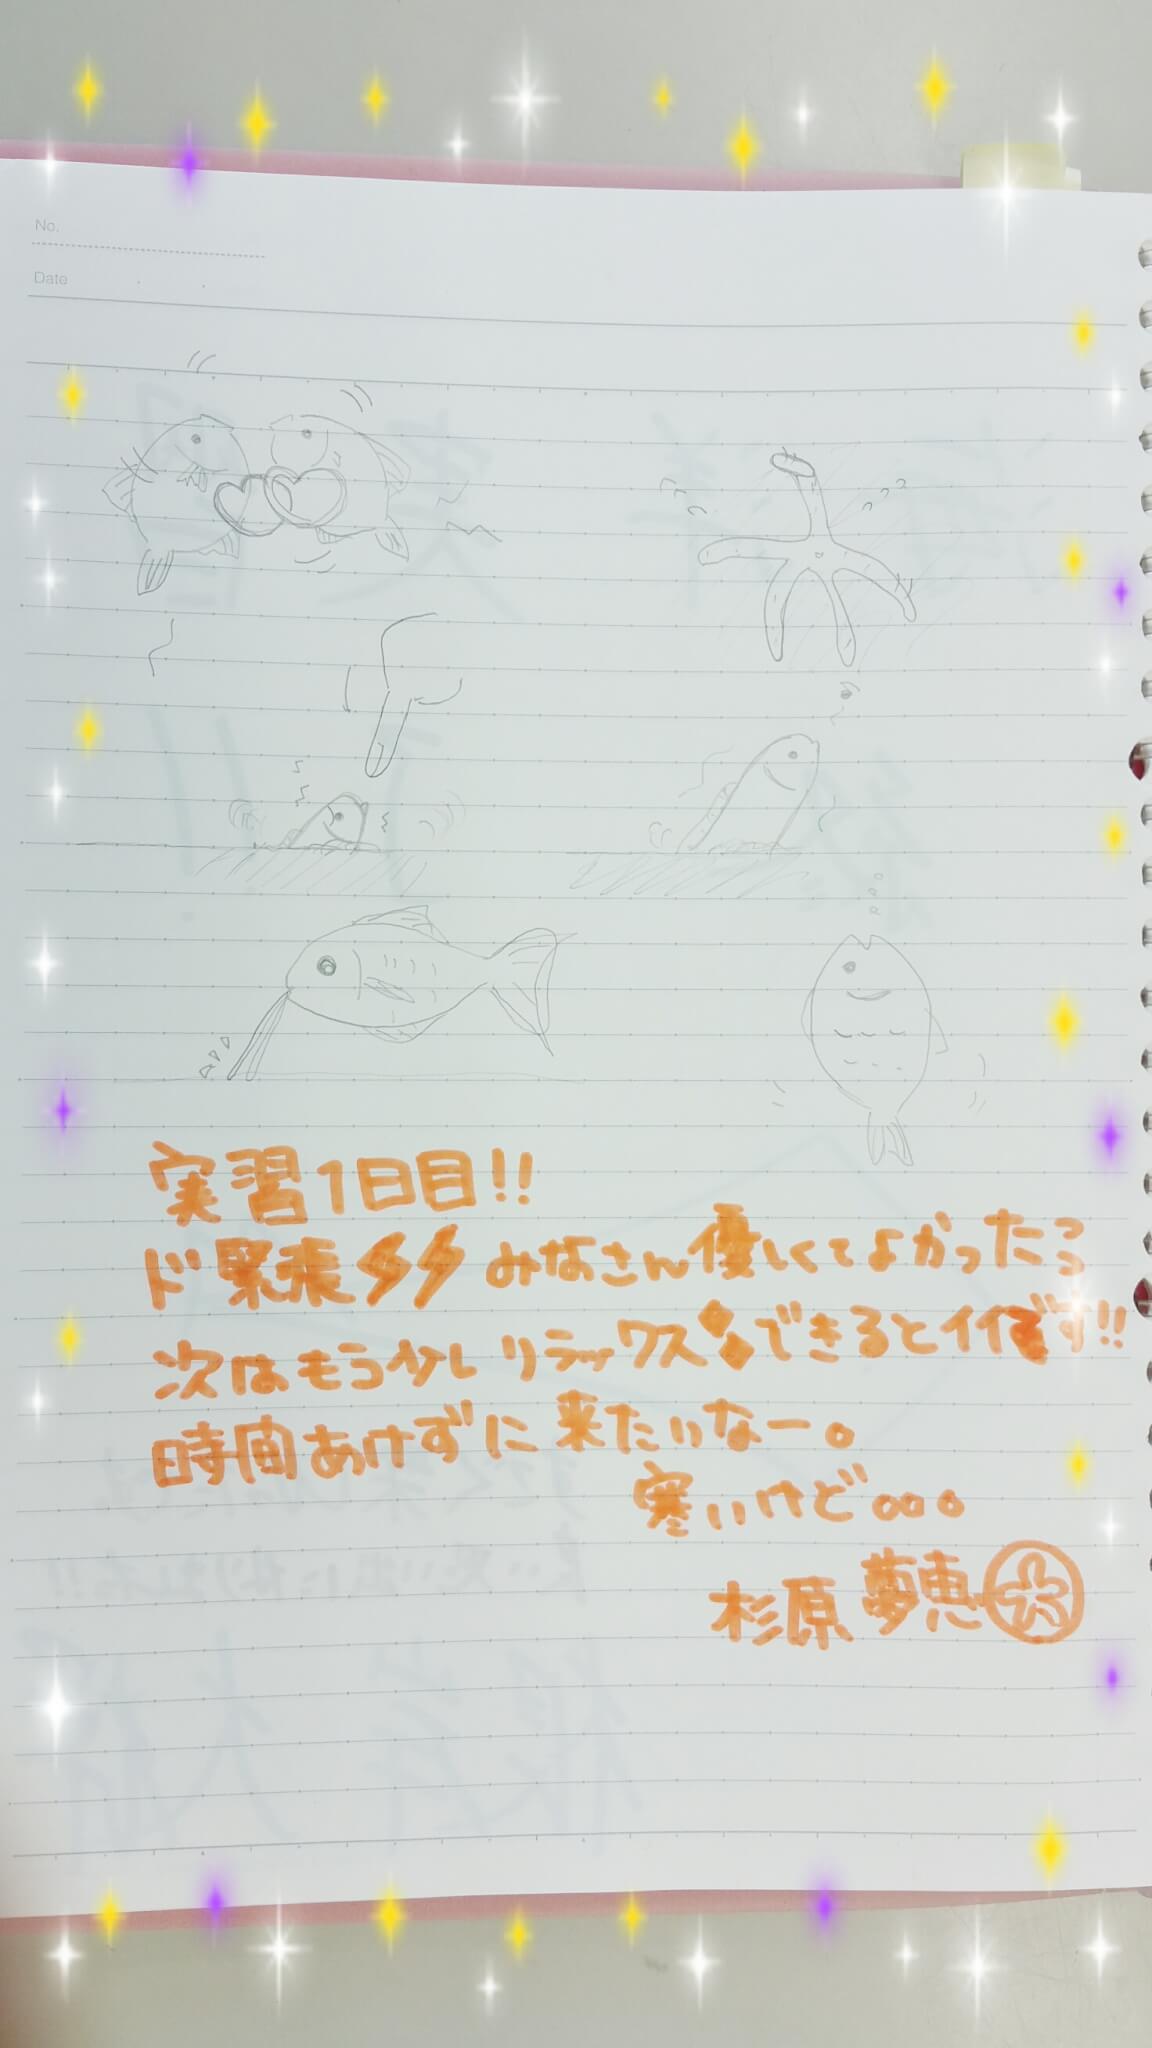 No.
Date
実習1日目!!
ド緊張⚡⚡みなさん優しくてよかったー
次はもう少しリラックスできるとイイです!!
時間あけずに来たいなー。
寒いけど。。。
杉原 夢恵